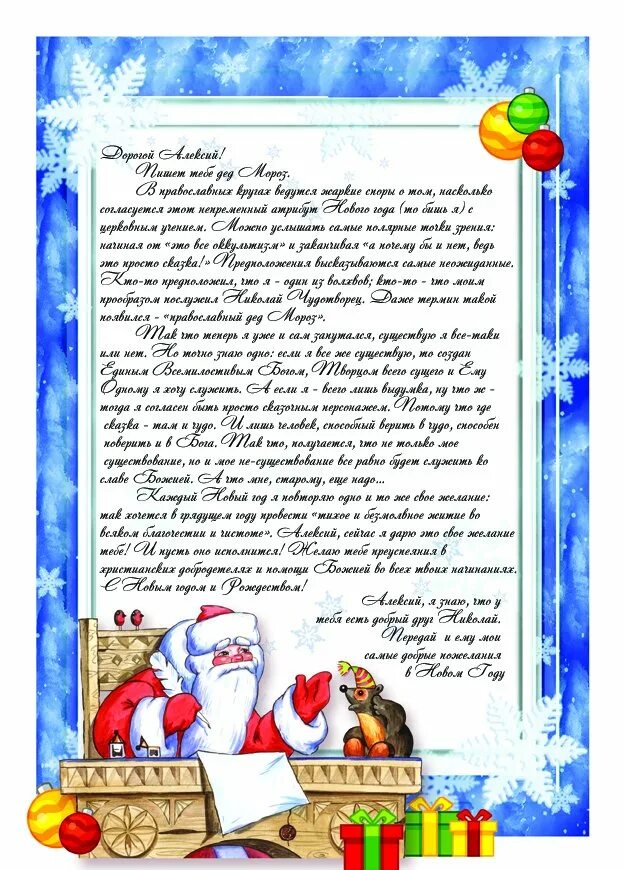 Дорогой Алексий!
Пишет тебе дед Мороз.
В православных кругах ведутся жаркие споры о том, насколько
согласуется этот непременный атрибут Нового года (то бишь я) с
церковным учением. Можно услышать самые полярные точки зрения:
начиная от «это все оккультизм» и заканчивая «а почему бы и нет, ведь
это просто сказка!» Предположения высказываются самые неожиданные.
Кто-то предположил, что я - один из волхвов; кто-то - что моим
прообразом послужил Николай Чудотворец. Даже термин такой
появился - «православный дед Мороз».
Так что теперь я уже и сам запутался, существую я все-таки
или нет. Но точно знаю одно: если я все же существую, то создан
Единым Всемилостивым Богом, Творцом всего сущего и Ему
Одному я хочу служить. А если я - всего лишь выдумка, ну что ж -
тогда я согласен быть просто сказочным персонажем. Потому что где
сказка - там и чудо. И лишь человек, способный верить в чудо, способен
поверить и в Бога. Так что, получается, что не только мое
существование, но и мое не-существование все равно будет служить ко
славе Божией. А что мне, старому, еще надо...
Каждый Новый год я повторяю одно и то же свое желание:
так хочется в грядущем году провести «тихое и безмолвное житие во
всяком благочестии и чистоте». Алексий, сейчас я дарю это свое желание
тебе! И пусть оно исполнится! Желаю тебе преуспеяния в
христианских добродетелях и помощи Божией во всех твоих начинаниях.
С Новым годом и Рождеством!
Алексий, я знаю, что у
тебя есть добрый друг Николай.
Передай и ему мои
самые добрые пожелания
в Новом Году